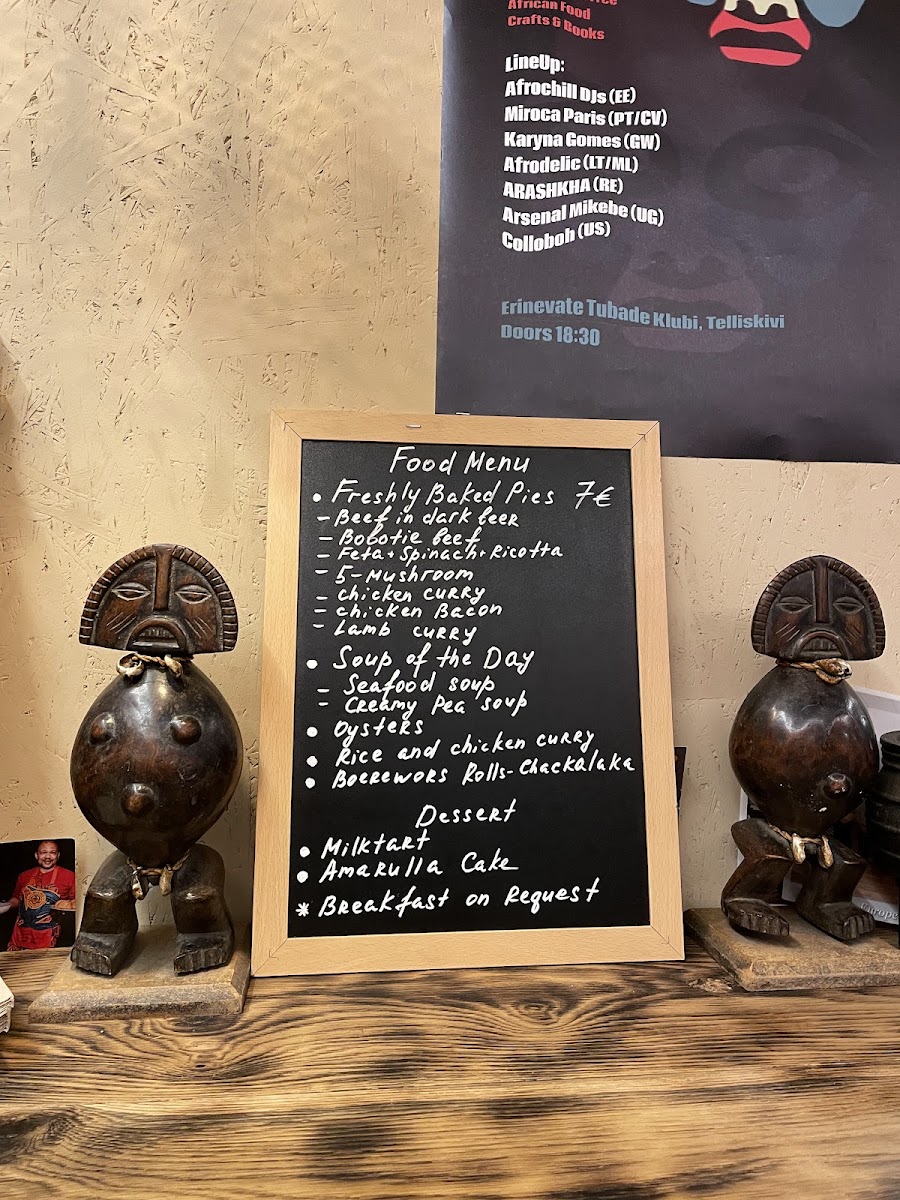 African Food
Crafts & Books
LineUp:
Afrochill DJs (EE)
Miroca Paris (PT/CV)
Karyna Gomes (GW)
Afrodelic (LT/ML)
ARASHKHA (RE)
Arsenal Mikebe (UG)
Colloboh (US)
Erinevate Tubade Klubi, Telliskivi
Doors 18:30
Food Menu
• Freshly Baked Pies 7€
- Beef in dark beer
- Bobotie beef
- Feta + Spinach + Ricotta
- 5-Mushroom
- Chicken curry
- Chicken Bacon
- Lamb curry
• Soup of the Day
- Seafood soup
- Creamy Pea soup
• Oysters
• Rice and chicken curry
• Boerewors Rolls - Chackalaka
Dessert
• Milktart
• Amarulla Cake
* Breakfast on Request